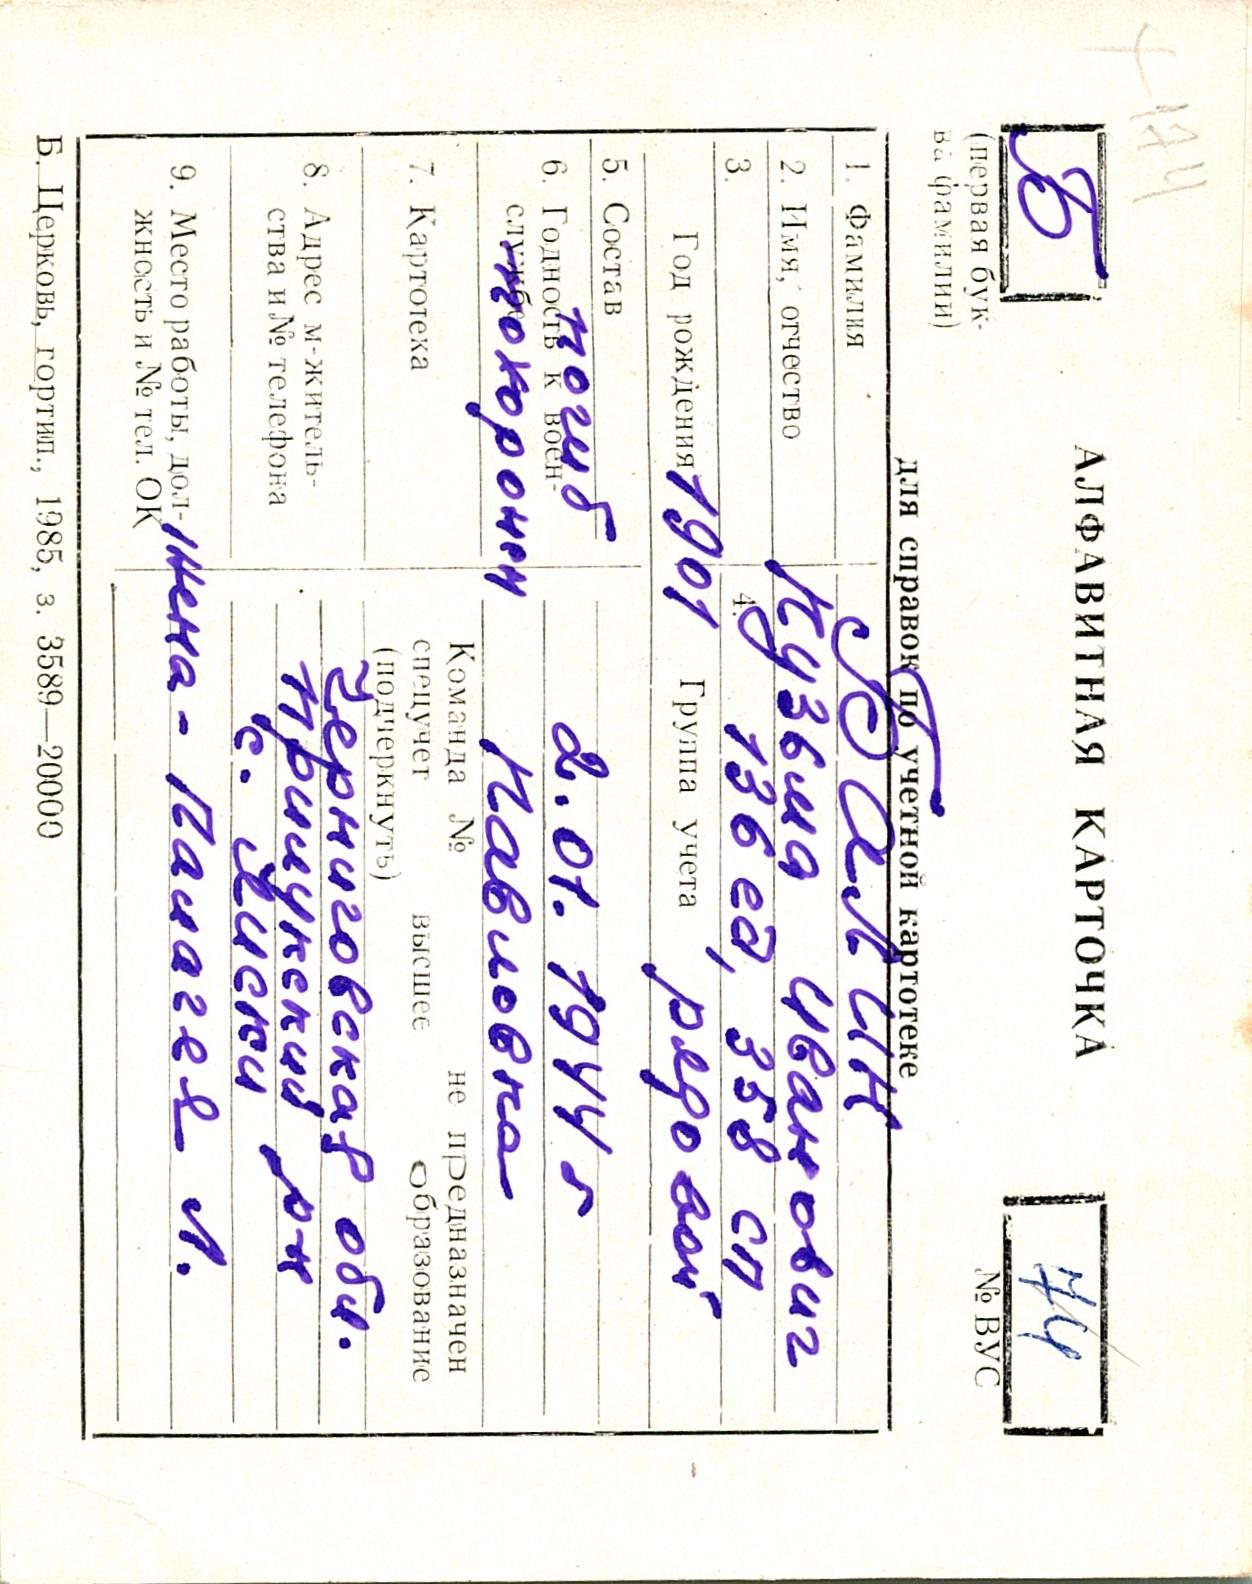 +174
Б
(первая бук-
ва фамилии)
АЛФАВИТНАЯ КАРТОЧКА
для справок по учетной картотеке
74
№ ВУС
1. Фамилия Балин
2. Имя, отчество Кузьма Иванович
3. 4. 136 сд, 358 сп
Год рождения 1901 Группа учета рядовой
5. Состав погиб 2.01.1944 г
6. Годность к воен-
службе похоронен Павловка
7. Картотека
Команда № не предназначен
спецучет высшее образование
(подчеркнуть)
8. Адрес м-житель-
ства и № телефона
Черниговская обл.
Прилукский р-н
с.
9. Место работы, дол-
жность и № тел. ОК
жена - Палагея Л.
Б. Церковь, гортип., 1985, з. 3589—20000